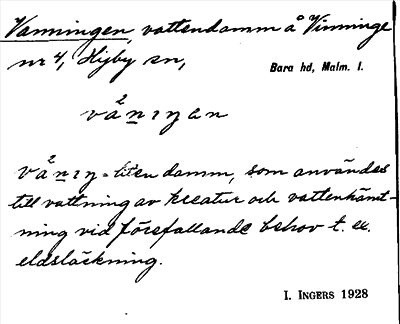 Vanningen, vattendamm å Vinninge
nr 4, Hyby sn,
Bara hd, Malm. l.
vånıŋan
vånıŋ = liten damm, som användes
till vattning av kreatur och vattenhämt-
ning vid förefallande behov t. ex.
eldsläckning.
I. INGERS 1928